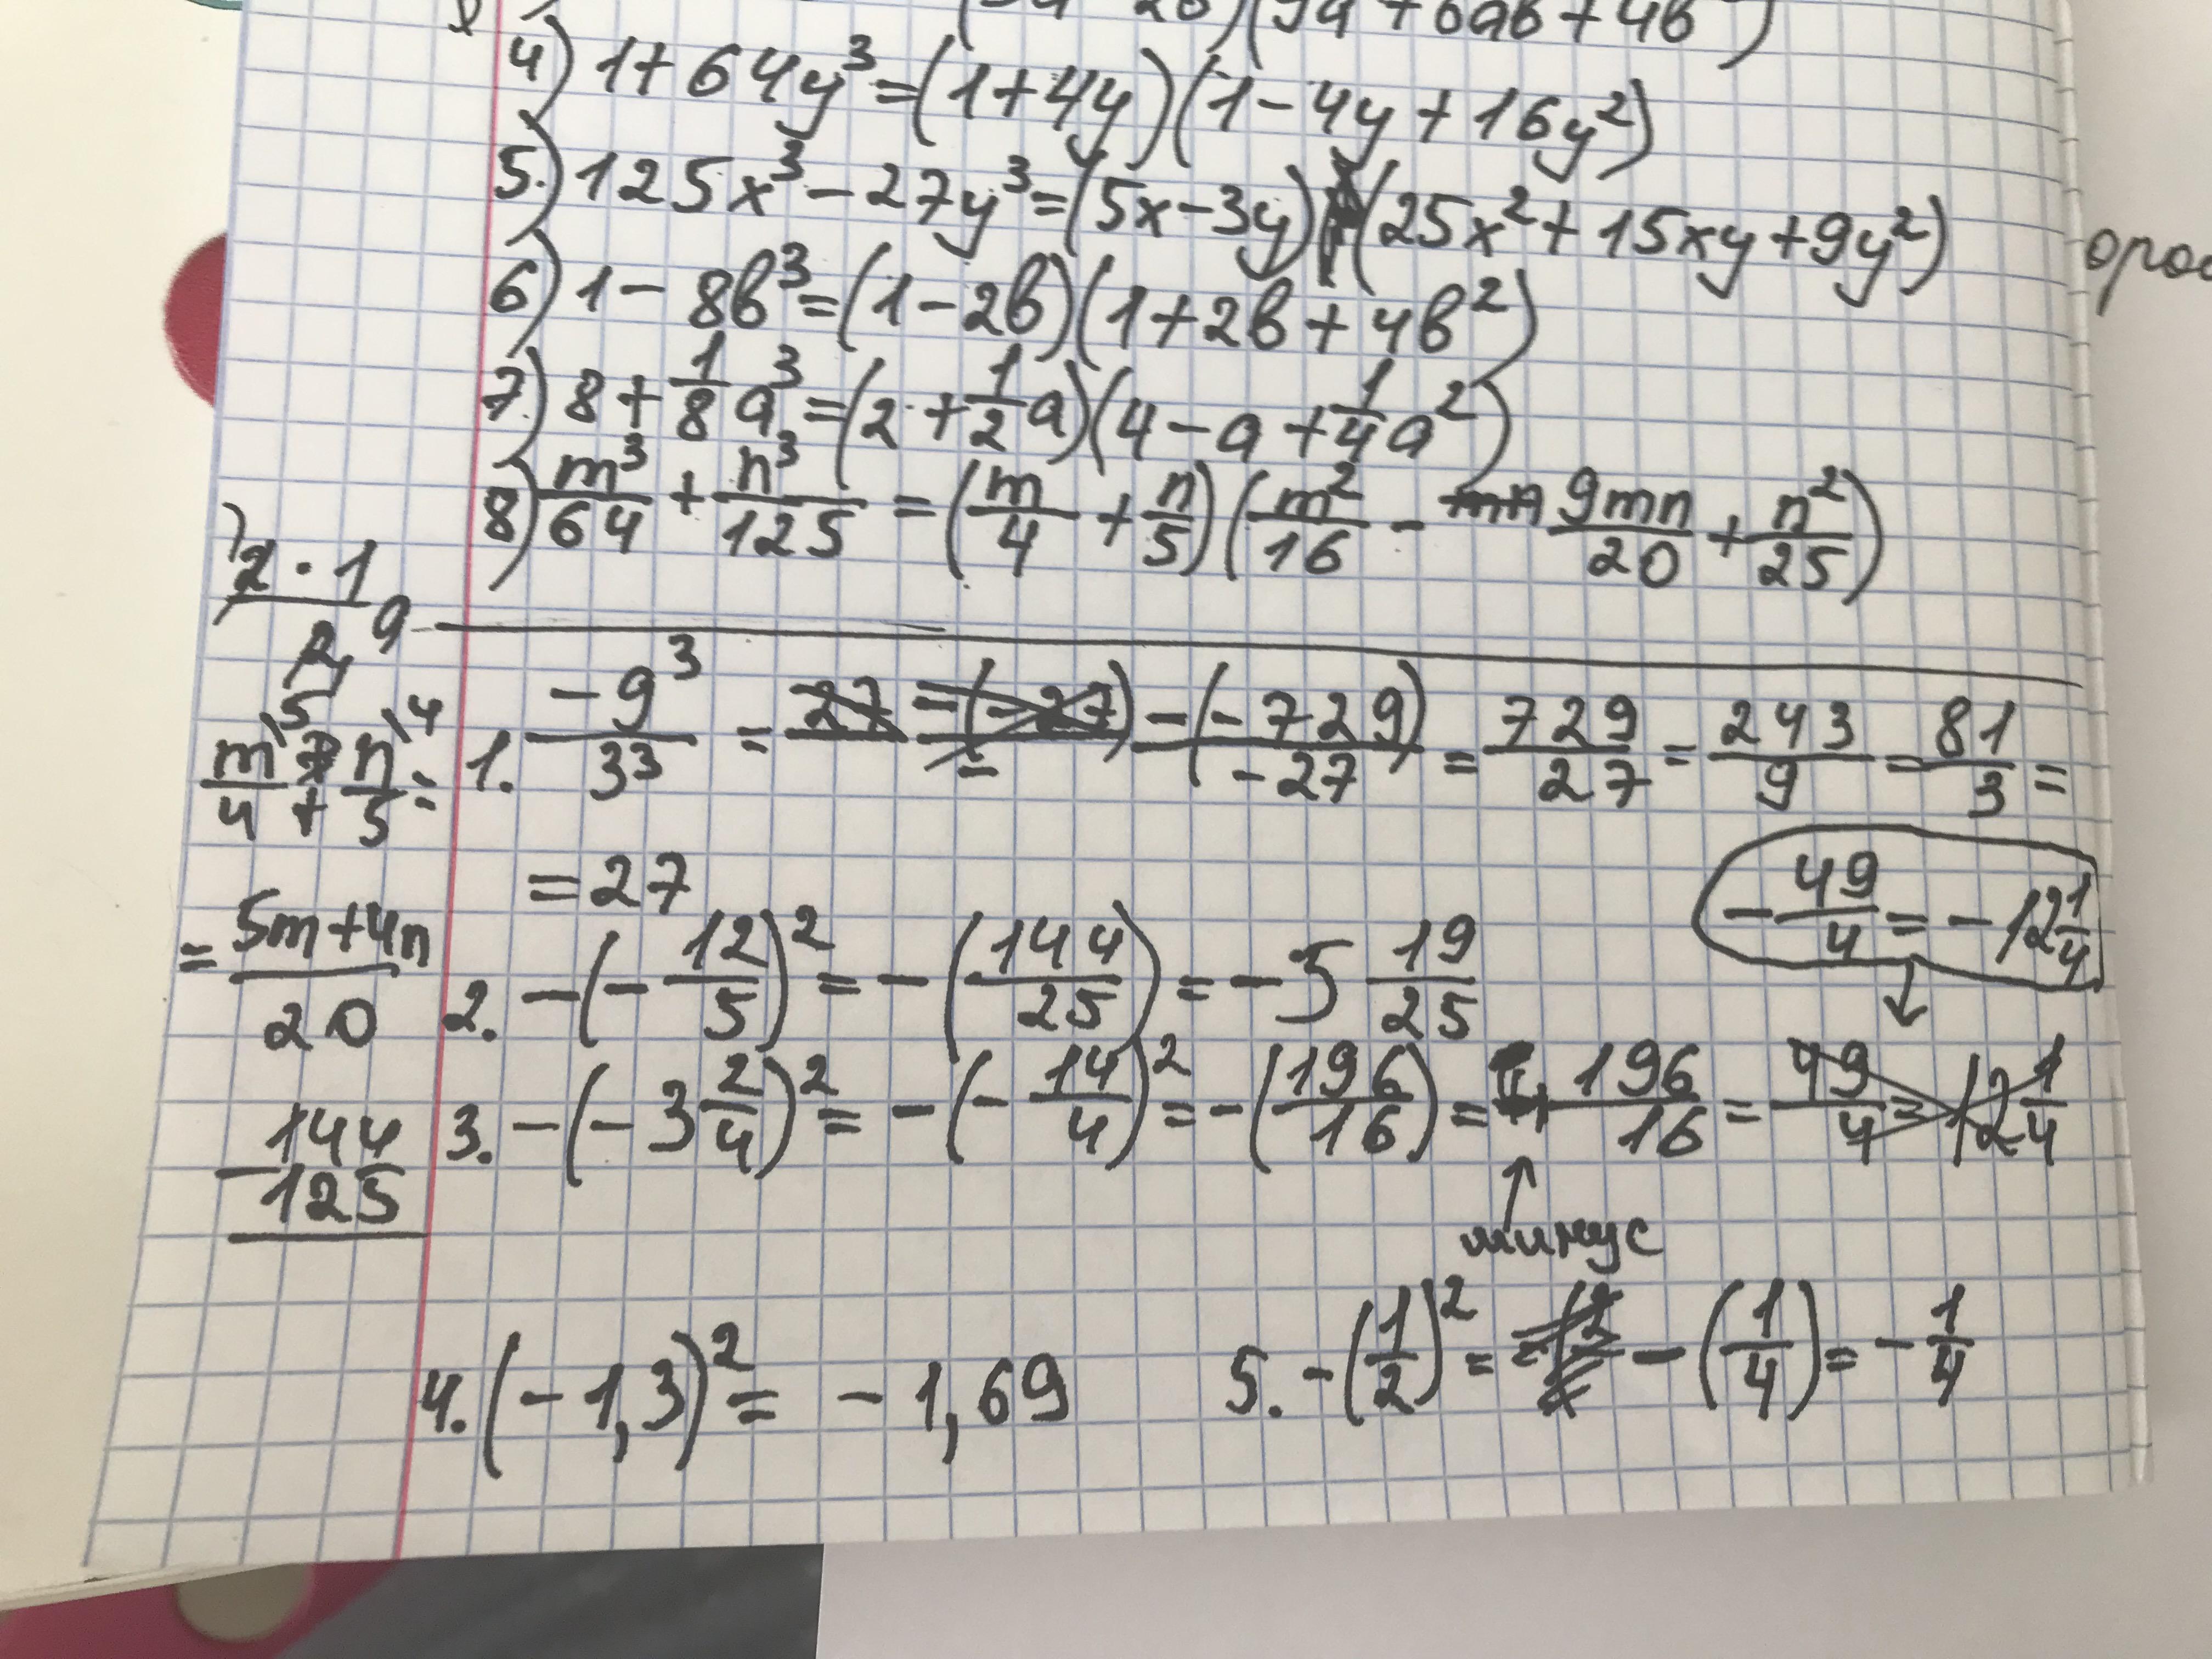 4) 1+64y³=(1+4y)(1-4y+16y²)
5.) 125x³-27y³=(5x-3y)(25x²+15xy+9y²)
6) 1-8b³=(1-2b)(1+2b+4b²)
7.) 8+1/8a³=(2+1/2a)(4-a+1/4a²)
8) m³/64+n³/125=(m/4+n/5)(m²/16-9mn/20+n²/25)
2·1/2 a
m\5/4+n\4/5=
=5m+4n/20
144
-125
1. -9³/33=-(-729)/-27=729/27=243/9=81/3=
=27
2. -(-12/5)²=-(144/25)=-5 19/25
-49/4=-12 1/4
3. -(-3 2/4)²=-(-14/4)²=-(196/16)=-196/16=49/4=12 1/4
минус
4. (-1,3)²=-1,69
5. -(1/2)²=-(1/4)=-1/4